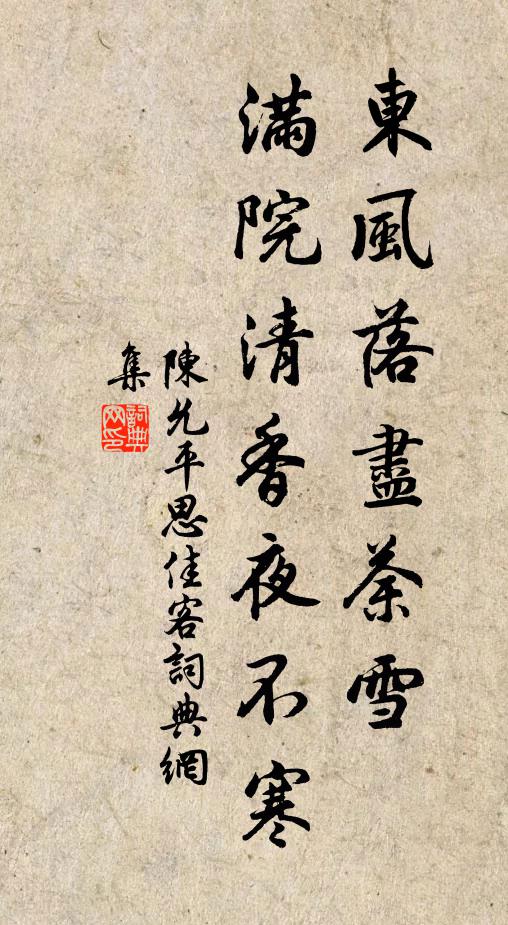 東風落盡荼雪
滿院清香夜不寒
陳允平思佳客詞典網
集
詞典網印